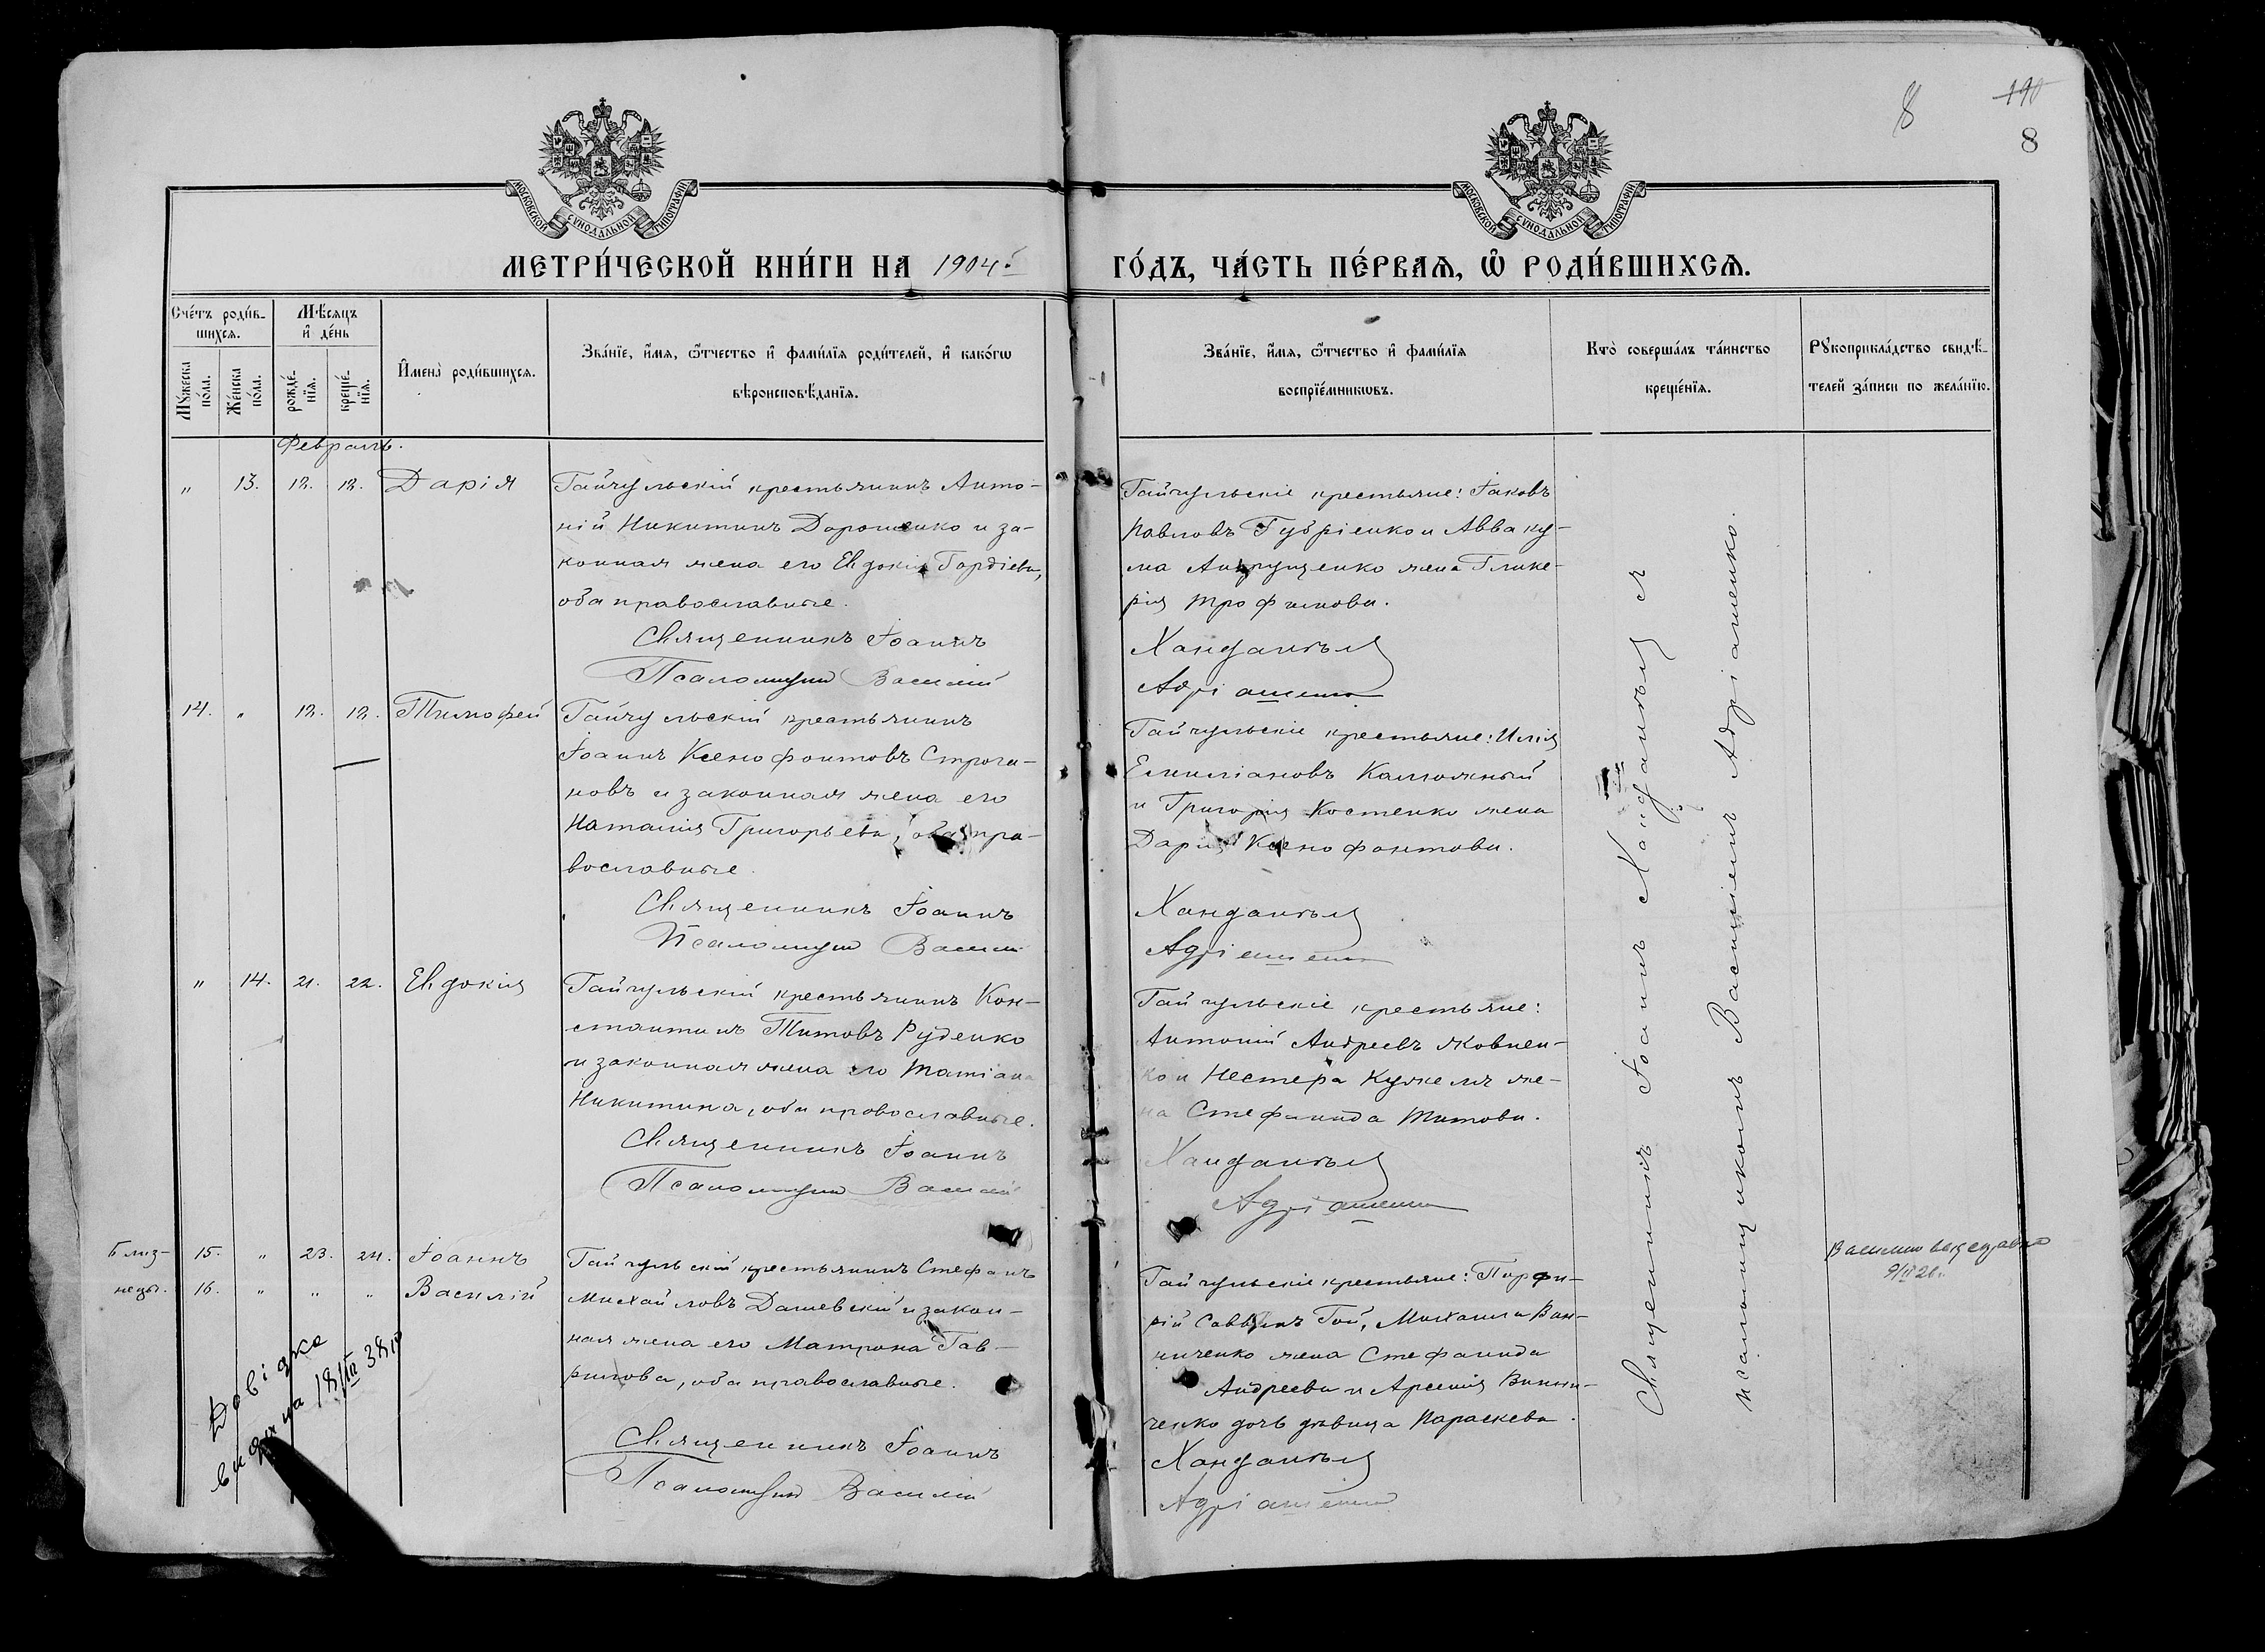 8
190
8
МОСКОВСКОЙ СѴНОДАЛЬНОЙ ТИПОГРАФІИ
МОСКОВСКОЙ СѴНОДАЛЬНОЙ ТИПОГРАФІИ
МЕТРИ́ЧЕСКОЙ КНИ́ГИ НА 1904й
ГО́ДЪ, ЧА́СТЬ ПЕ́РВАѦ, Ѽ РОДИ́ВШИХСѦ.
Сче́тъ роди́в-
шихсѧ.
Мꙋ́жеска по́ла.
Же́нска по́ла.
Мѣ́сѧцъ
и҆ де́нь
рожде́-
нїѧ.
креще́-
нїѧ.
И҆мена̀ роди́вшихсѧ.
Зва́нїе, и҆́мѧ, ѻ҆́тчество и҆ фами́лїѧ роди́телей, и҆ како́гѡ
вѣроисповѣ́данїѧ.
Зва́нїе, и҆́мѧ, ѻ҆́тчество и҆ фами́лїѧ
воспрїе́мникѡвъ.
Кто̀ соверша́лъ та́инство
креще́нїѧ.
Рꙋкоприкла́дство свидѣ́-
телей за́писи по жела́нїю.
Февраль.
" 13. 12. 12. Дарія
Гайчульскій крестьянинъ Анто-
ній Никитинъ Дорошенко и за-
конная жена его Евдокія Гордіева,
оба православные.
Священникъ Іоаннъ
Псаломщик Василій
Гайчульскіе крестьяне: Іаковъ
Павловъ Губріенко и Авваку-
ма Андрущенко жена Глике-
рія Трофимова.
Хандантъ
Адріашенко
14. " 12. 12. Тимофей
Гайчульскій крестьянинъ
Іоаннъ Ксенофонтовъ Строга-
новъ и законная жена его
Наталія Григорьева, оба пра-
вославные.
Священникъ Іоаннъ
Псаломщик Василій
Гайчульскіе крестьяне: Илія
Емиліановъ Калюжный
и Григорія Костенко жена
Дарія Ксенофонтова.
Адріашенко
" 14. 21. 22. Евдокія
Гайчульскій крестьянинъ Кон-
стантинъ Титовъ Руденко
и законная жена его Татіана
Никитина, оба православные.
Священникъ Іоаннъ
Псаломщик Василій
Гайчульскіе крестьяне:
Антоній Андреевъ Яковлен-
ко и Нестера Кужеля же-
на Стефанида Титова.
Адріашенко
Близ-
нецы.
15. " 23. 24. Іоаннъ
16. " " " Василій
Гайчульскій крестьянинъ Стефанъ
Михайловъ Дашевскій и закон-
ная жена его Матрона Гав-
рилова, оба православные.
Священникъ Іоаннъ
Псаломщик Василій
Гайчульскіе крестьяне: Порфи-
рій Саввинъ Гой, Михаила Вин-
ниченко жена Стефанида
Андреева и Арсенія Винни-
ченко дочь дѣвица Параскева.
Адріашенко
Священникъ Іоаннъ
псаломщикомъ Василіемъ Адріашенко.
Довідка
видана 18/III 38 р